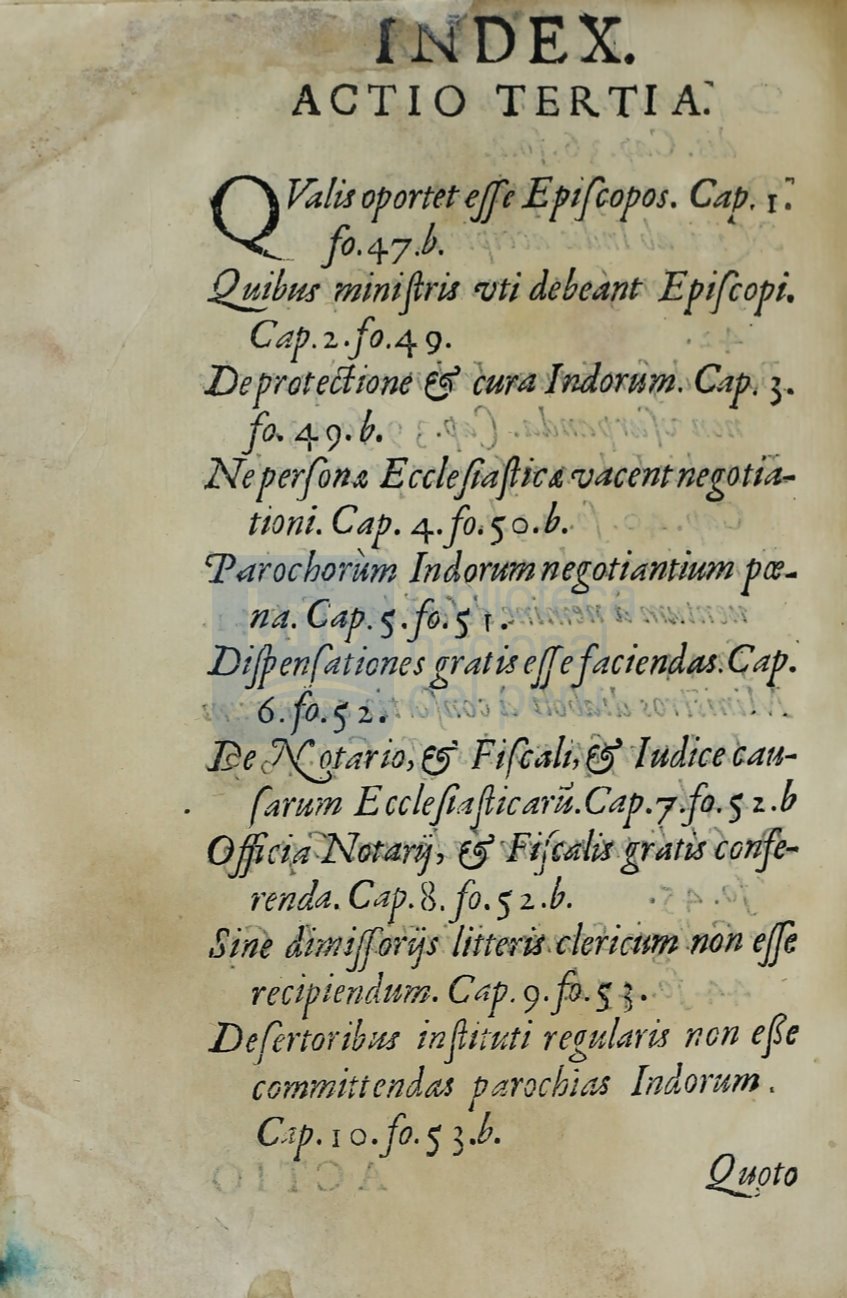 INDEX.
ACTIO TERTIA.
QValis oportet eſſe Epiſcopos. Cap. 1.
fo.47.b.
Quibus miniſtris vti debeant Epiſcopi.
Cap.2.fo.49.
De protectione & cura Indorum. Cap. 3.
fo. 49.b.
Ne perſonæ Eccleſiaſticæ vacent negotia-
tioni. Cap. 4.fo.50.b.
Parochorùm Indorum negotiantium pœ-
na. Cap.5.fo.51.
Diſpenſationes gratis eſſe faciendas.Cap.
6.fo.52.
De Notario, & Fiſcali, & Iudice cau-
ſarum Eccleſiaſticarũ.Cap.7.fo.52.b
Officia Notarij, & Fiſcalis gratis confe-
renda. Cap.8.fo.52.b.
Sine dimiſſorijs litteris clericum non eſſe
recipiendum. Cap.9.fo.53.
Deſertoribus inſtituti regularis non eſſe
committendas parochias Indorum.
Cap.10.fo.53.b.
Quoto